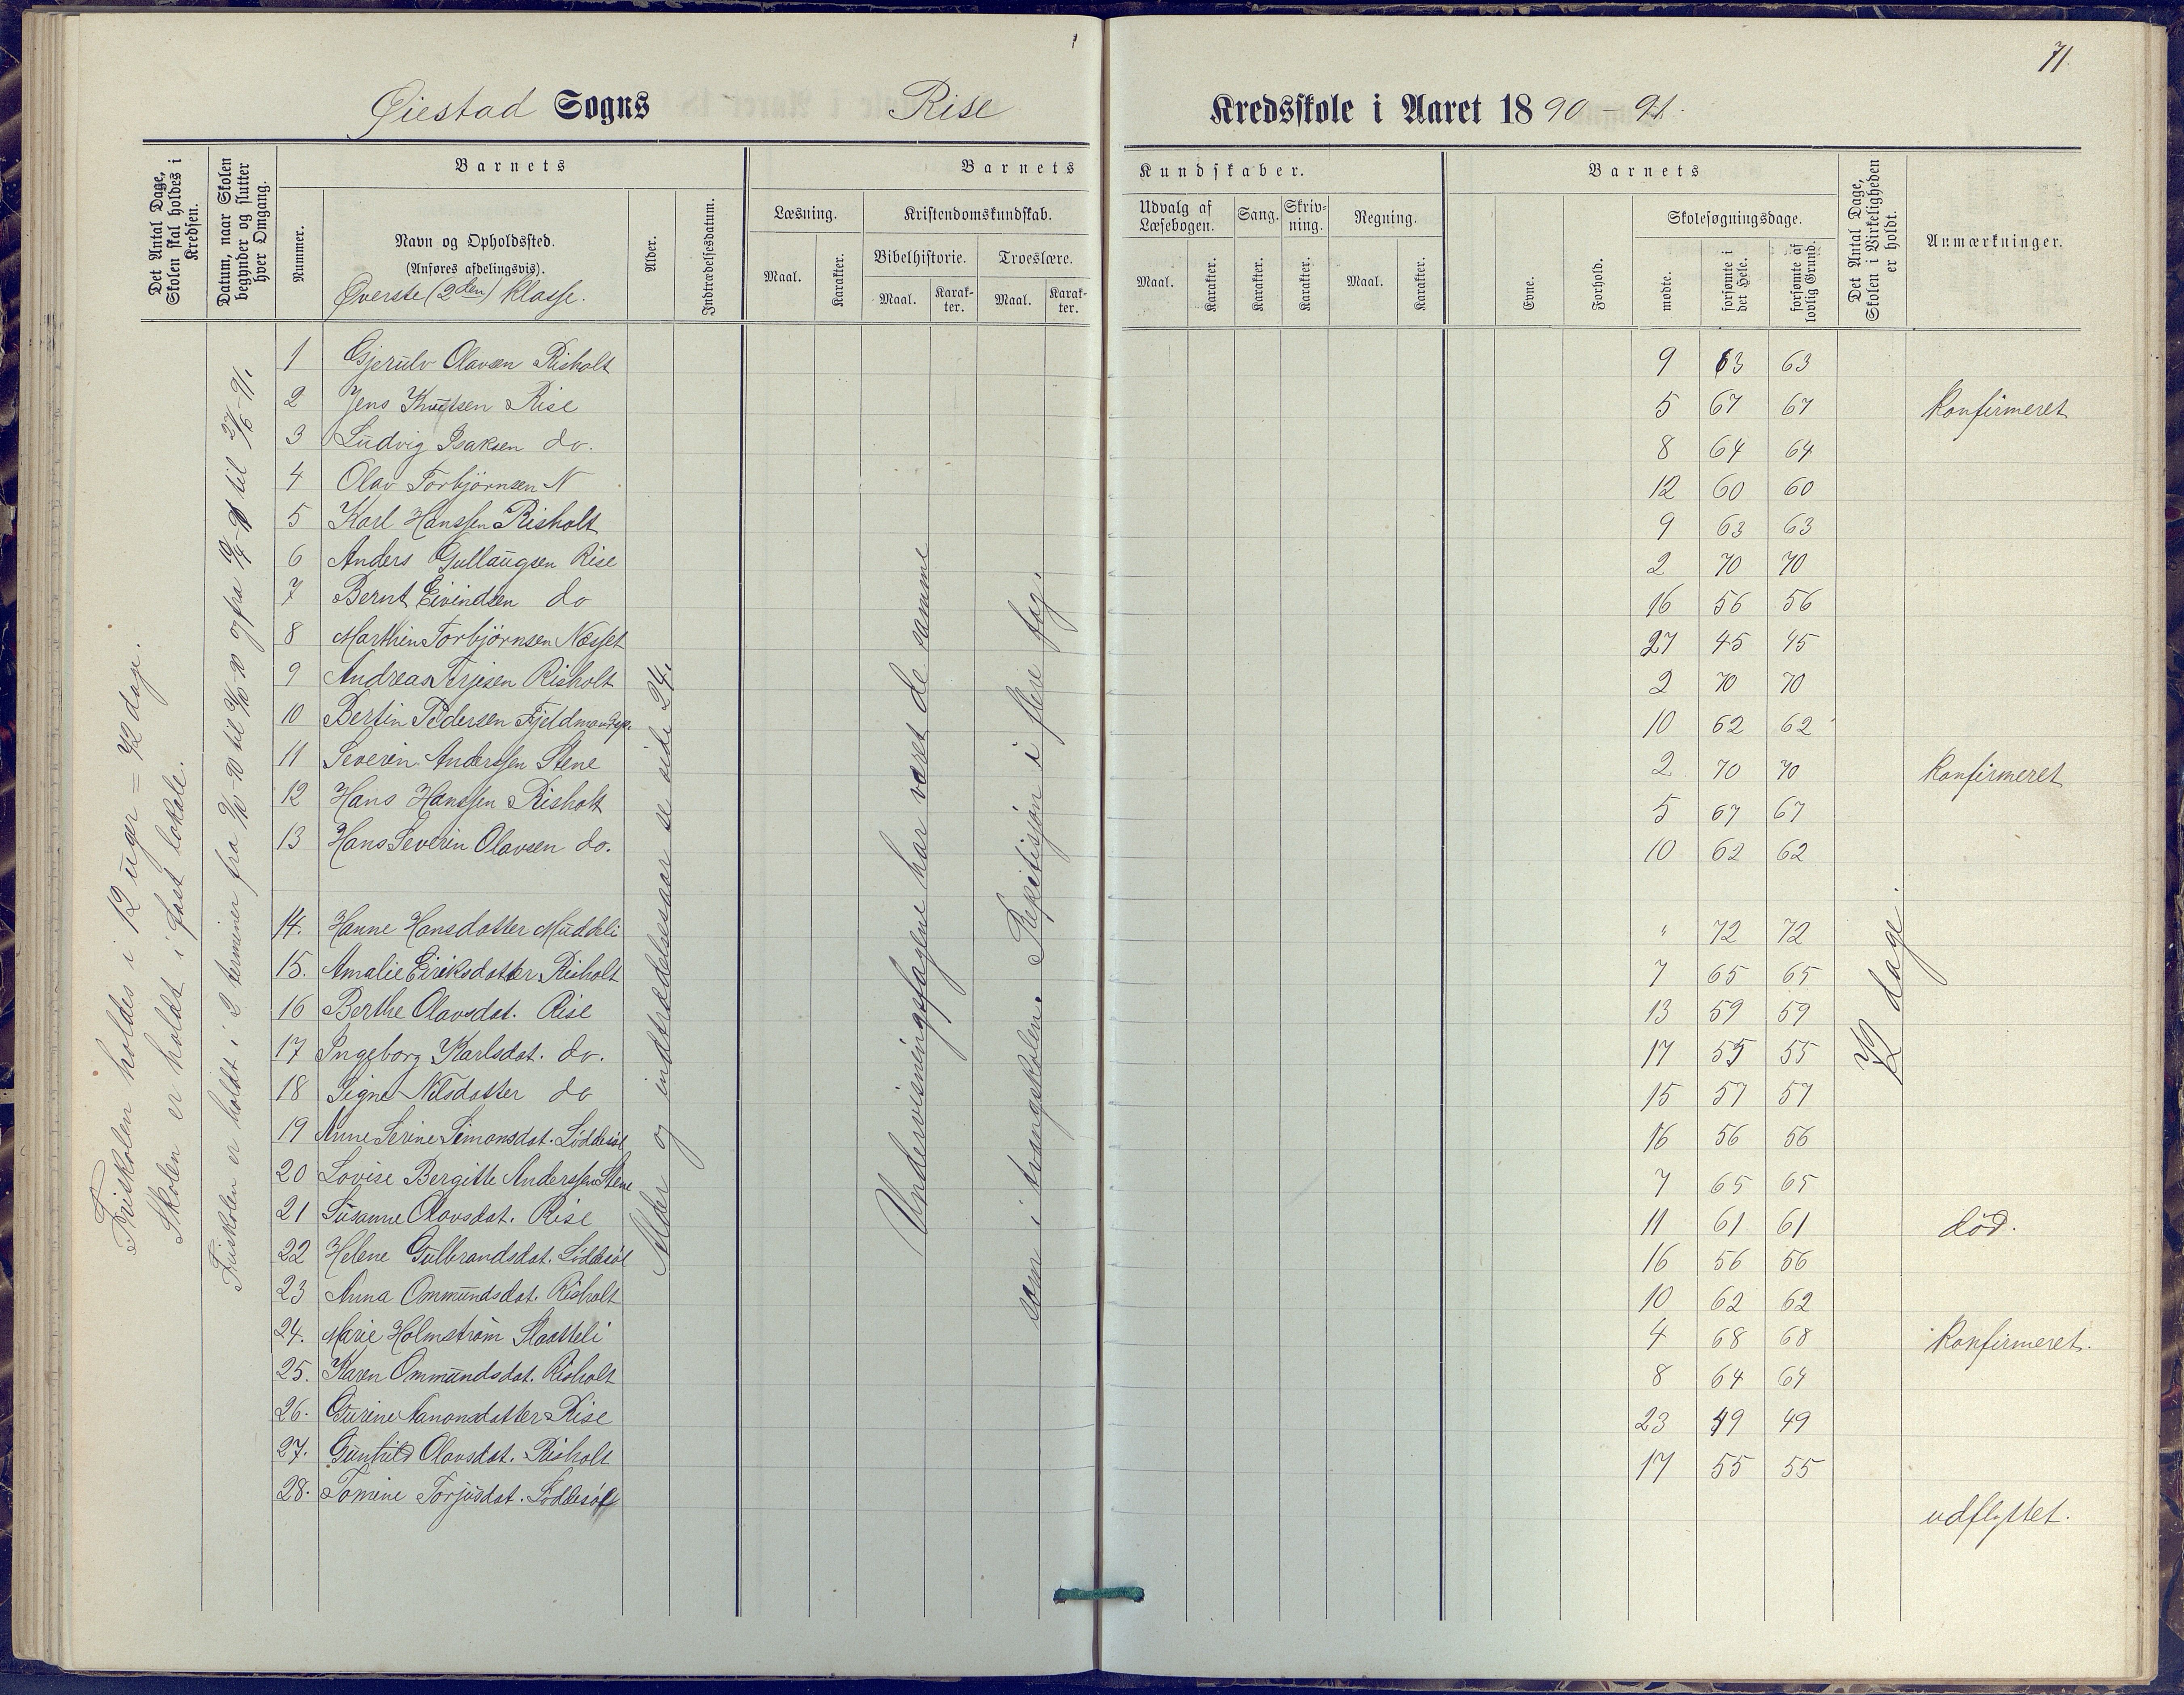 71.
Øiestad Sogns Rise Kredsskole i Aaret 1890 - 91.
Det Antal Dage, Skolen skal holdes i Kredsen.
Datum, naar Skolen begynder og slutter hver Omgang.
Barnets
Nummer.
Navn og Opholdssted.
(Anføres afdelingsvis).
Øverste (2den) klasse.
Alder.
Indtrædelsesdatum.
Barnets Kundskaber.
Læsning.
Maal.
Karakter.
Kristendomskundskab.
Bibelhistorie.
Maal.
Karakter.
Troeslære.
Maal.
Karakter.
Udvalg af Læsebogen.
Maal.
Karakter.
Sang.
Karakter.
Skrivning.
Karakter.
Regning.
Maal.
Karakter.
Barnets
Evne.
Forhold.
Skolesøgningsdage.
mødte.
forsømte i det Hele.
forsømte af lovlig Grund.
Det Antal Dage, Skolen i Virkeligheden er holdt.
Anmærkninger.
Friskolen holdes i 12 uger = 72 dage.
Skolen er holdt i fast lokale.
Friskolen er holdt i 2 terminer fra
Alder og indtrædelsesaar se side 24.
Undervisningsfagene har været de samme
som i tvangsskolen. Repetisjon i flere fag.
72 dage.
1 Gjerulv Olavsen Risholt 9 63 63
2 Jens Knutsen Rise 5 67 67 Konfirmeret
3 Ludvig Isaksen do. 8 64 64
4 Olav Torbjørnsen N 12 60 60
5 Karl Hanssen Risholt 9 63 63
6 Anders Gullaugsen Rise 2 70 70
7 Bernt Eivindsen do 16 56 56
8 Marthin Torbjørnsen Næsset 27 45 45
9 Andreas Terjesen Risholt 2 70 70
10 Bertin Pedersen 10 62 62
11 Severin Anderssen Stene 2 70 70 Konfirmeret
12 Hans Hanssen Risholt 5 67 67
13 Hans Severin Olavsen do. 10 62 62
14. Hanne Hansdatter " 72 72
15. Amalie Eiriksdatter Risholt 7 65 65
16 Berthe Olavsdat. Rise 13 59 59
17 Ingeborg Karlsdat. do. 17 55 55
18 Signe Nilsdatter do 15 57 57
19 Anne Serine Simonsdat. Løddesøl 16 56 56
20 Lovise Bergitte Anderssen Stene 7 65 65
21 Susanne Olavsdat. Rise 11 61 61 død.
22 Helene Gulbrandsdat. Løddesøl 16 56 56
23 Anna Ommundsdat. Risholt 10 62 62
24. Marie Holmstrøm Slaatteli 4 68 68 Konfirmeret.
25. Karen Ommundsdat. Risholt 8 64 64
26. Gurine Aanonsdatter Rise 23 49 49
27. Gunhild Olavsdat. Risholt 17 55 55
28. Tomine Torjusdat. Løddesøl udflyttet.